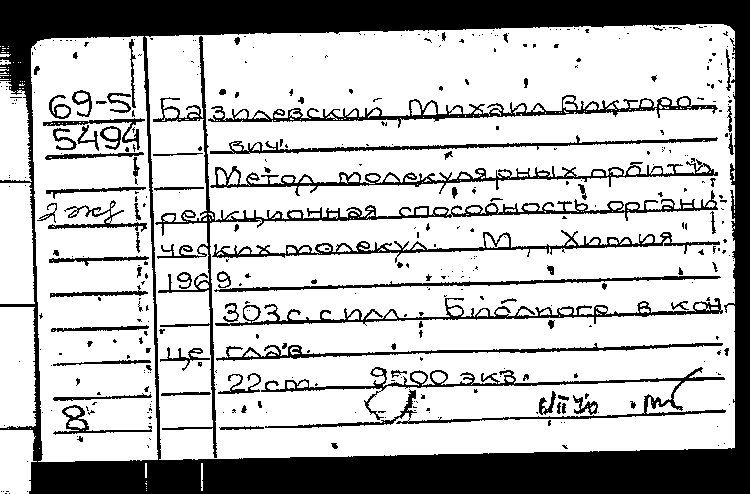 69-5
5494
Базилевский, Михаил Викторо-
вич.
Метод молекулярных орбит и
2 экз
реакционная способность органи-
ческих молекул. М., "Химия",
1969.
303 с. с илл. Библиогр. в кон-
це глав.
22 cm. 9500 экз.
8